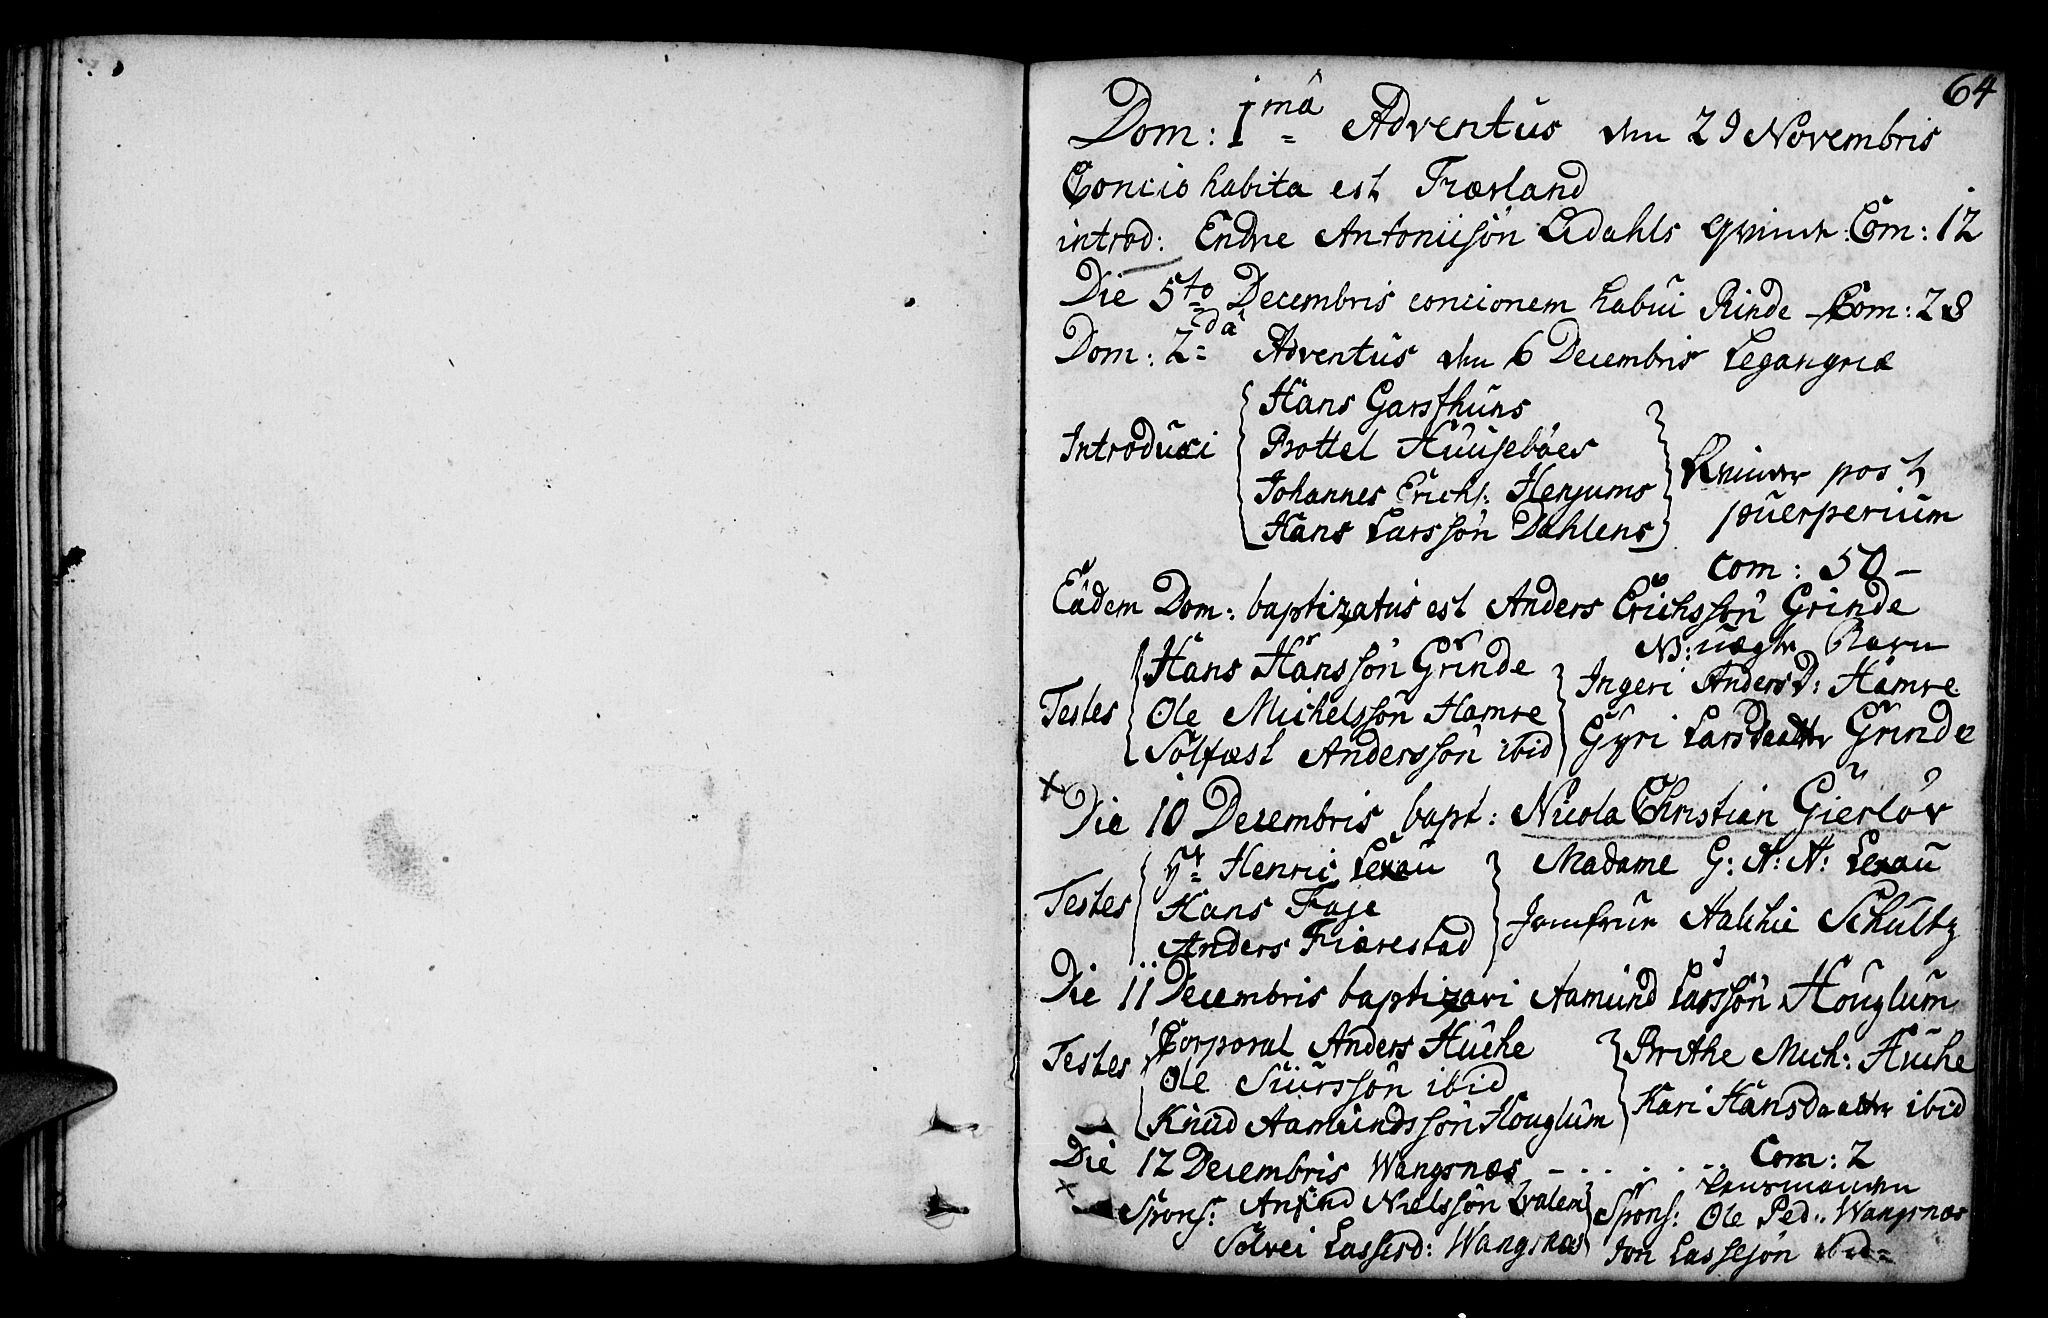 64
Dom: 1mâ Adventûs den 29 Novembris
Concio habita est Fræsland
introd: Endre Antoniisön Lidahls Com: 12
Die 5to Decembris concionem habui Rinde Com: 28
Dom: 2dâ Adventûs den 6 Decembris Legangriæ
Introduxi
Hans Garsfhuns
Bottel Huuseböes
Johannes Erichs: Henjums
Hans Larssön Dahlens
Qvinder post
puerperium
com: 50 –
Eâdem Dom: baptizatus est Anders Erichssön Grinde
NB: uægte Barn
Testes
Hans Hanssön Grinde
Ole Michelssön Hamre
Solfæst Anderssön ibid
Ingeri Anders D: Hamre
Gyri Larsdaatter Grinde
x
Die 10 Decembris bapt: Nicola Christian Gierlöv
Testes
Hr Henric Lexau
Hans Faje
Anders Fiærestad
Madame G: A: A: Lexau
Jomfrue Schultz
Die 11 Decembris baptizavi Aamund Larssön Houglum
Testes
Corporal Anders Huche
Ole Siurssön ibid
Knud Aamundssön Houglum
Brithe Mich: Huche
Kari Hansdaatter ibid
Die 12 Decembris Wangsnæs – . . . . . . Com: 2
x
Spons: Anfind Nielssön
Solvei Lassesd: Wangsnæs
Lensmanden
Spons: Ole Ped: Wangsnæs
Jon Lassesön ibid=